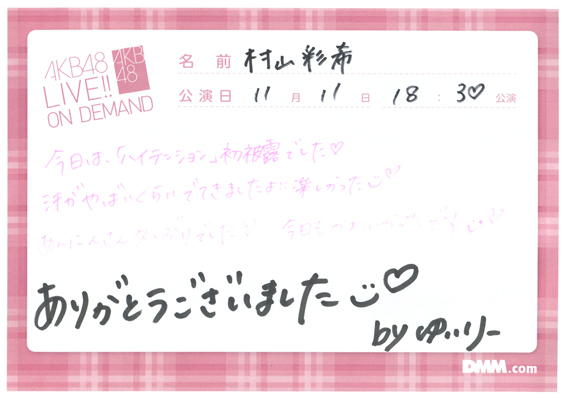 AKB48
LIVE!!
ON DEMAND
AKB
48
名 前 村山彩希
公演日 11 月 11 日 18 : 30♡ 公演
今日は、「ハイテンション」初披露でした♡
汗がやばいくらいでてきましたよ!! 楽しかった
さん 久しぶりでした 今日も
ありがとうございました ♡
by ゆいりー
DMM.com